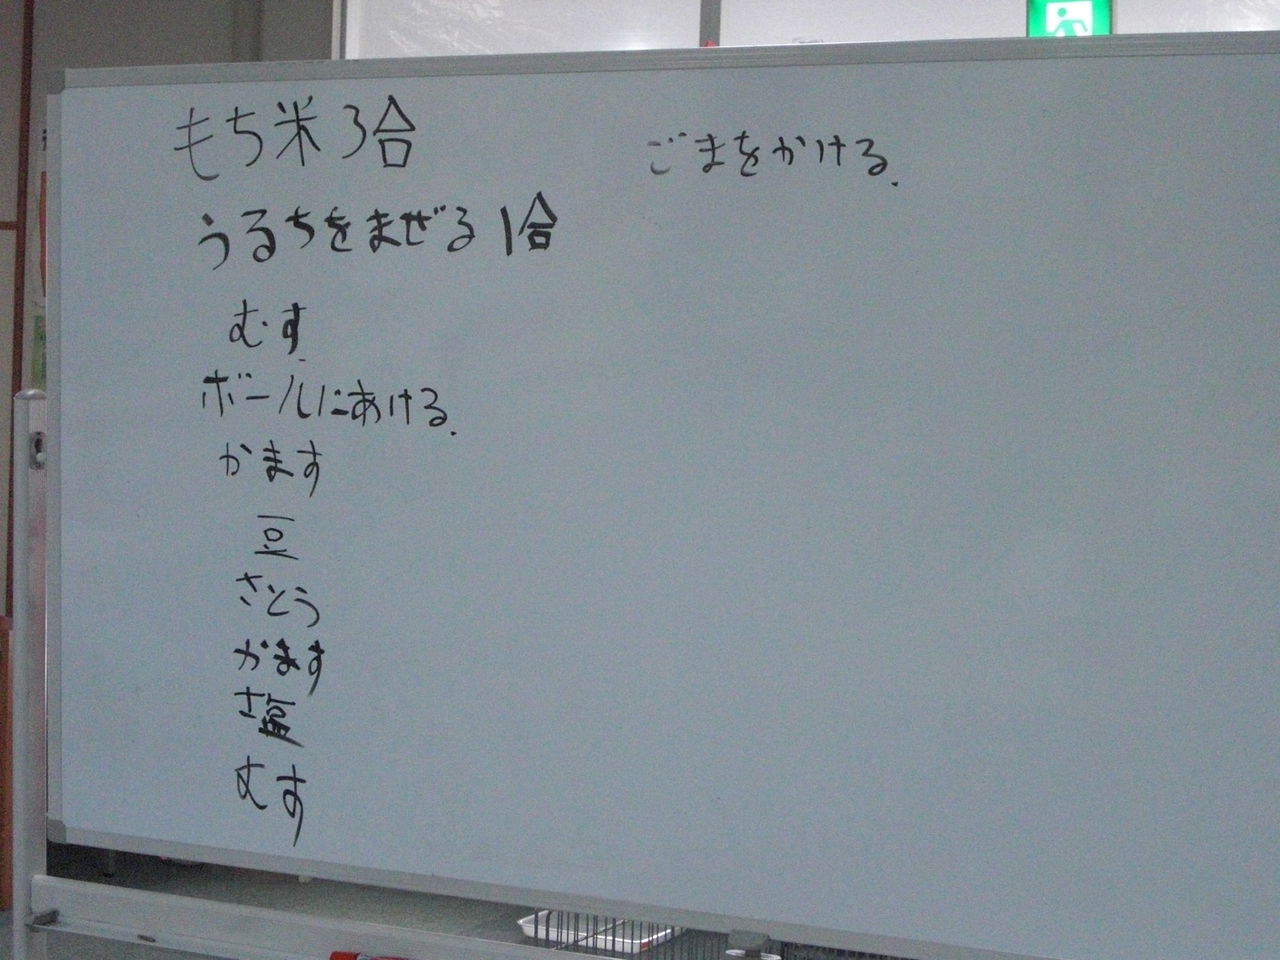 もち米 3合
うるちをまぜる 1合
むす
ボールにあける.
かます
豆
さとう
かます
むす
ごまをかける.